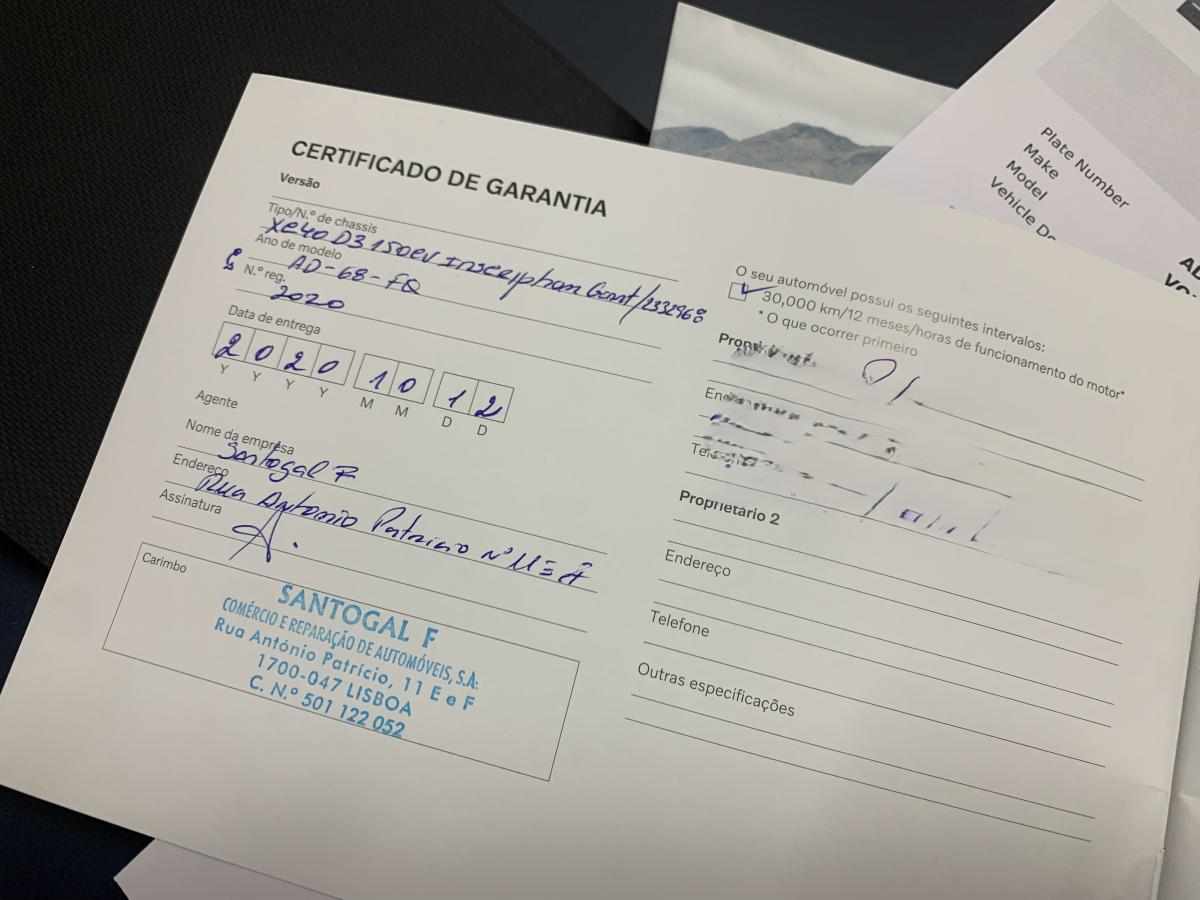 CERTIFICADO DE GARANTIA
Versão
Tipo/N.º de chassis
XC40 D3 150cv Inscription Geart/2332968
Ano de modelo
AD-68-FQ
N.º reg.
2020
Data de entrega
2020 10 12
Y Y Y Y M M D D
Agente
Nome da empresa
Santogal F
Endereço
Rua Antonio Patricio Nº 11 E
Assinatura
Carimbo
SANTOGAL F
COMÉRCIO E REPARAÇÃO DE AUTOMÓVEIS, S.A.
Rua António Patrício, 11 E e F
1700-047 LISBOA
C. N.º 501 122 052
O seu automóvel possui os seguintes intervalos:
30,000 km/12 meses/horas de funcionamento do motor*
* O que ocorrer primeiro
Proprietário 2
Endereço
Telefone
Outras especificações
Plate Number
Make
Model
Vehicle